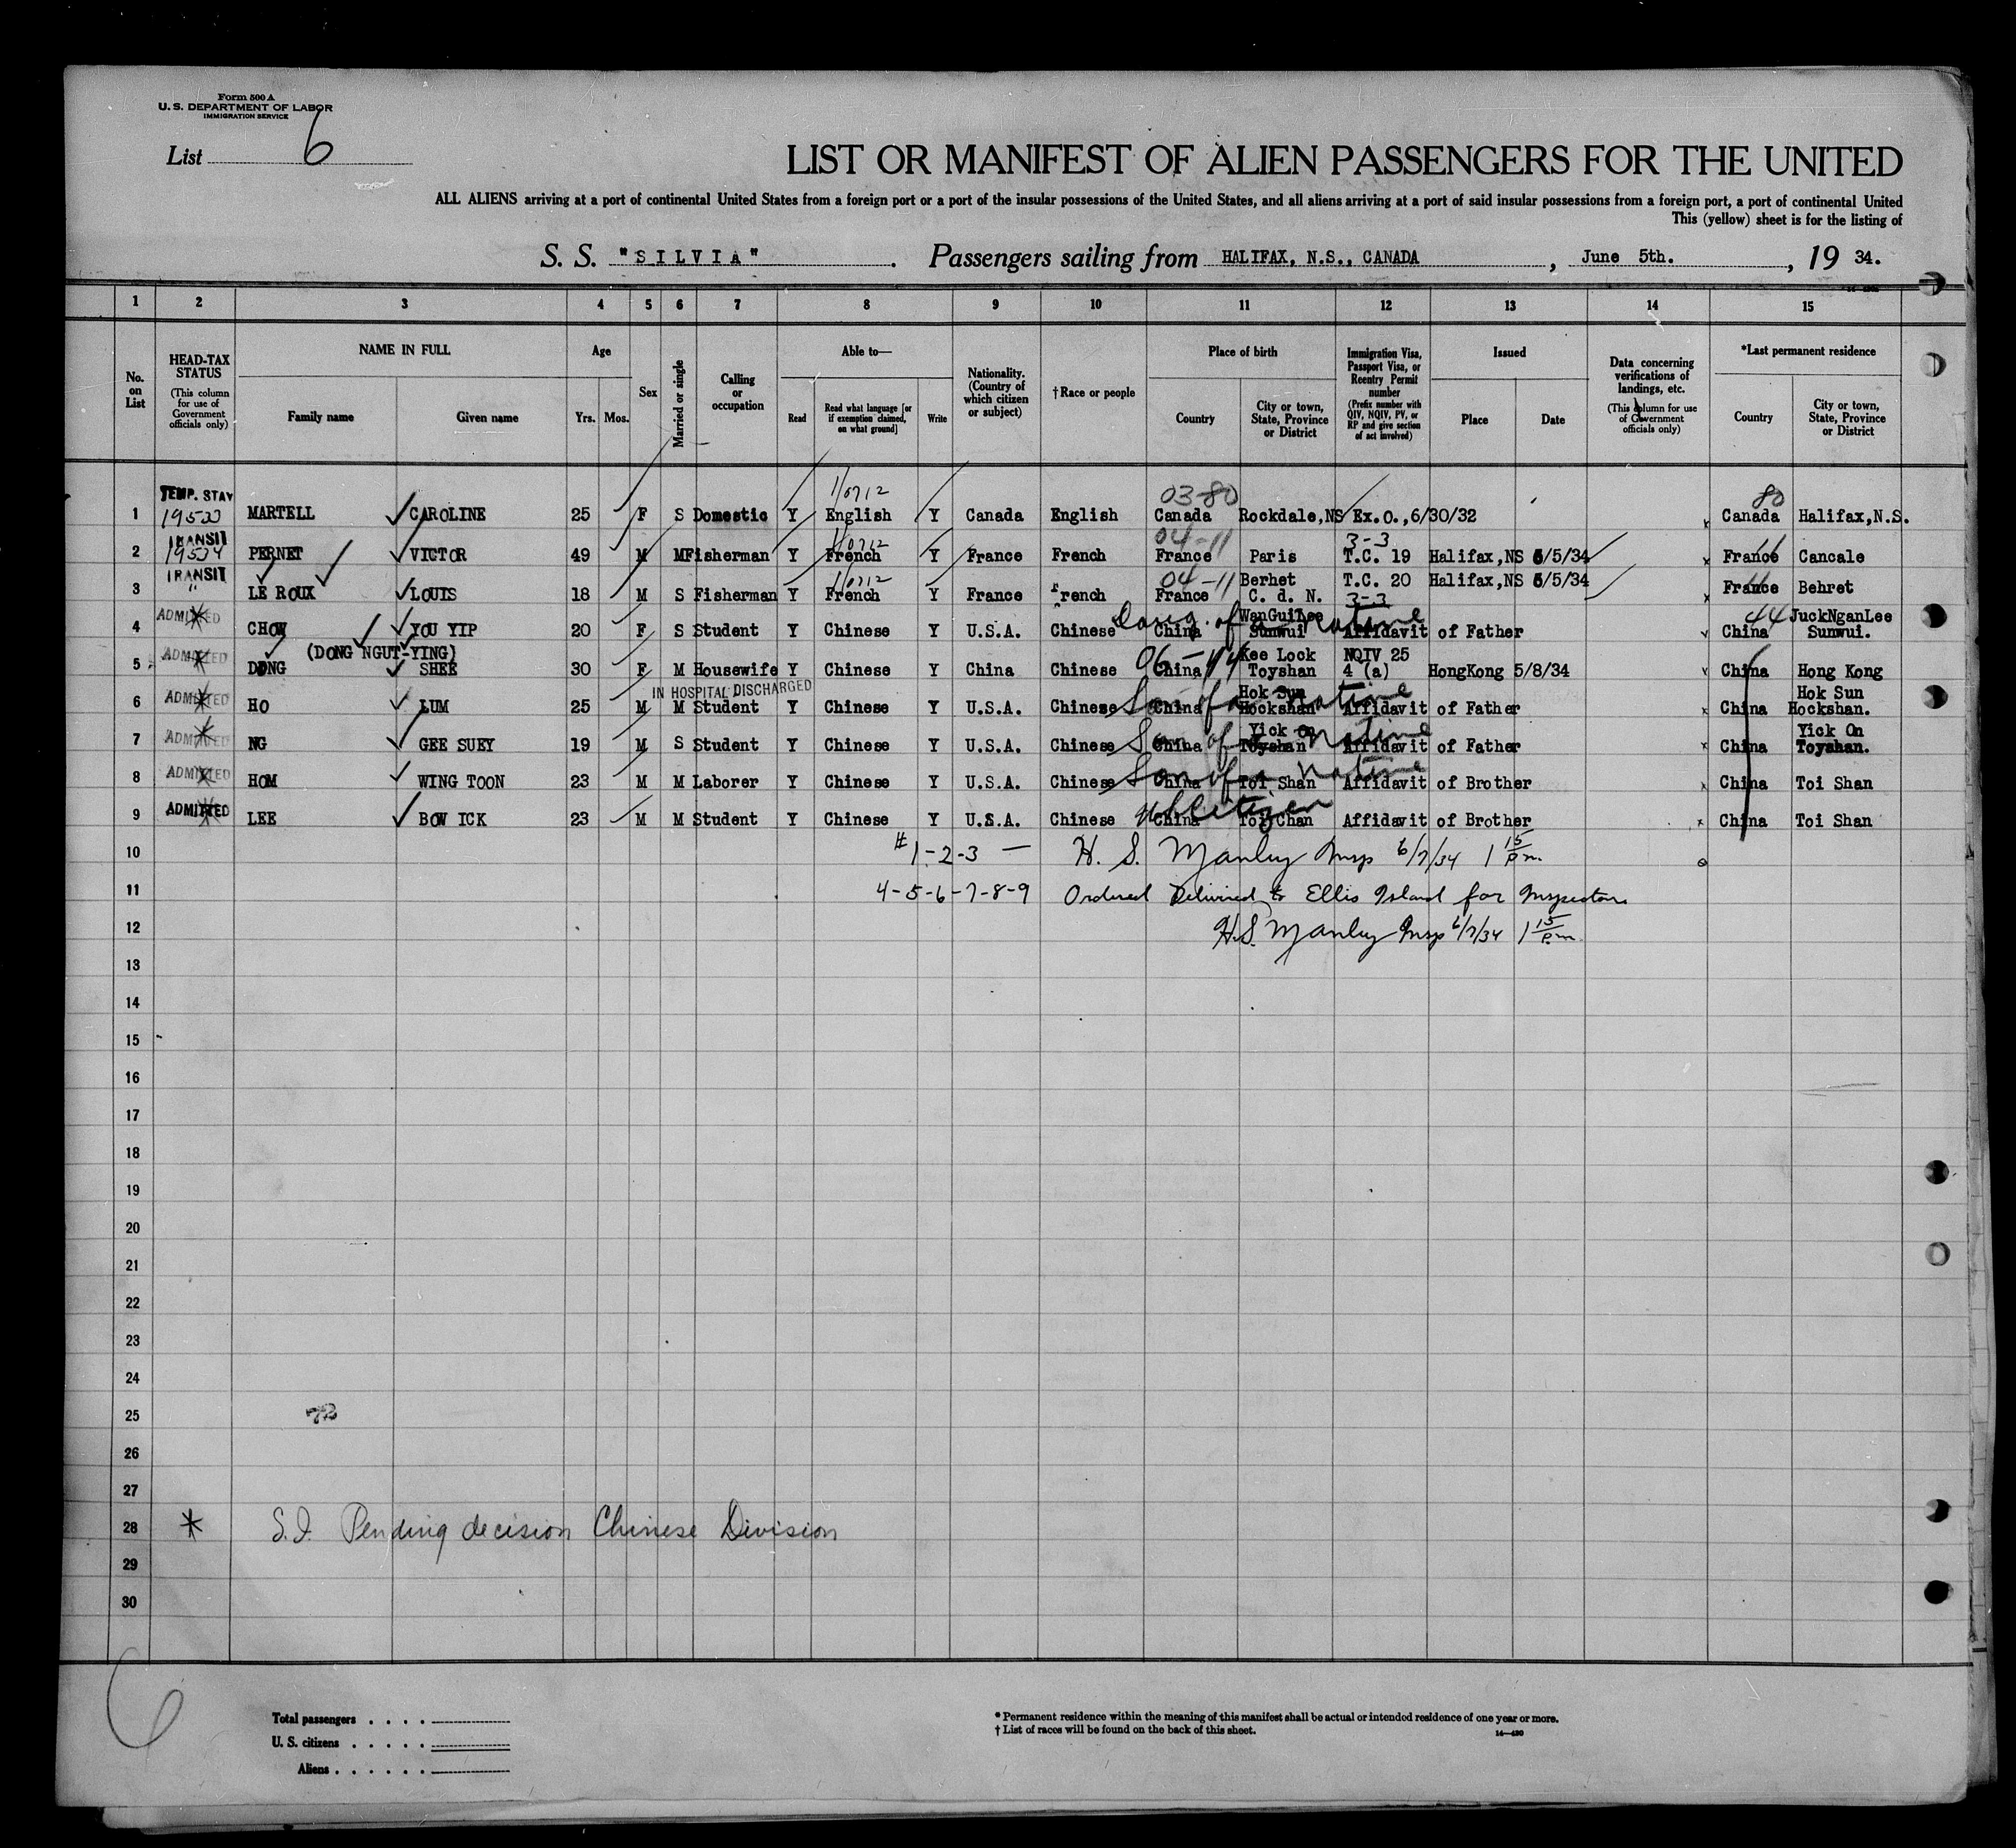 Form 500 A
U. S. DEPARTMENT OF LABOR
IMMIGRATION SERVICE
List 6
LIST OR MANIFEST OF ALIEN PASSENGERS FOR THE UNITED
ALL ALIENS arriving at a port of continental United States from a foreign port or a port of the insular possessions of the United States, and all aliens arriving at a port of said insular possessions from a foreign port, a port of continental United
This (yellow) sheet is for the listing of
S. S. "SILVIA". Passengers sailing from HALIFAX, N.S., CANADA, June 5th., 19 34.
1 2 3 4 5 6 7 8 9 10 11 12 13 14 15
No. on List
HEAD-TAX STATUS (This column for use of Government officials only)
NAME IN FULL Family name Given name
Age Yrs. Mos.
Sex
Married or single
Calling or occupation
Able to— Read Read what language [or if exemption claimed, on what ground] Write
Nationality. (Country of which citizen or subject)
† Race or people
Place of birth Country City or town, State, Province or District
Immigration Visa, Passport Visa, or Reentry Permit number (Prefix number with QIV, NQIV, PV, or RP and give section of act involved)
Issued Place Date
Data concerning verifications of landings, etc. (This column for use of Government officials only)
*Last permanent residence Country City or town, State, Province or District
TEMP. STAY 03-80 80
1 MARTELL CAROLINE 25 F S Domestic Y English Y Canada English Canada Rockdale,NS Ex.O.,6/30/32 Canada Halifax,N.S.
TRANSIT 04-11 3-3
2 PERNET VICTOR 49 M M Fisherman Y French Y France French France Paris T.C. 19 Halifax,NS 5/5/34 France Cancale
TRANSIT 04-11 Berhet T.C. 20 Halifax,NS 5/5/34
3 " LE ROUX LOUIS 18 M S Fisherman Y French Y France French France C. d. N. 3-3 France Behret
ADMITTED Daug. of a native WanGuiLee 44 JuckNganLee
4 CHOW YOU YIP 20 F S Student Y Chinese Y U.S.A. Chinese China Sunwui Affidavit of Father China Sunwui.
ADMITTED (DONG NGUT-YING) 06-44 Kee Lock NQIV 25
5 DONG SHEE 30 F M Housewife Y Chinese Y China Chinese China Toyshan 4 (a) HongKong 5/8/34 China Hong Kong
ADMITTED IN HOSPITAL DISCHARGED Son of a native Hok Sun Hok Sun
6 HO LUM 25 M M Student Y Chinese Y U.S.A. Chinese China Hockshan Affidavit of Father China Hockshan.
ADMITTED Son of a native Yick On Yick On
7 NG GEE SUEY 19 M S Student Y Chinese Y U.S.A. Chinese China Toyshan Affidavit of Father China Toyshan.
ADMITTED Son of a native
8 HOM WING TOON 23 M M Laborer Y Chinese Y U.S.A. Chinese China Toi Shan Affidavit of Brother China Toi Shan
ADMITTED US Citizen
9 LEE BOW ICK 23 M M Student Y Chinese Y U.S.A. Chinese China Toi Chan Affidavit of Brother China Toi Shan
10 #1-2-3 — H. S. Manley Insp 6/7/34 1 15 P.m.
11 4-5-6-7-8-9 Ordered Delivered to Ellis Island for Inspection
12 H.S. Manley Insp 6/7/34 1 15 P.m.
13
14
15
16
17
18
19
20
21
22
23
24
25
26
27
28 * S.I. Pending decision Chinese Division
29
30
6
Total passengers . . . .
U. S. citizens . . . . .
Aliens . . . . . .
* Permanent residence within the meaning of this manifest shall be actual or intended residence of one year or more.
† List of races will be found on the back of this sheet.
14—430